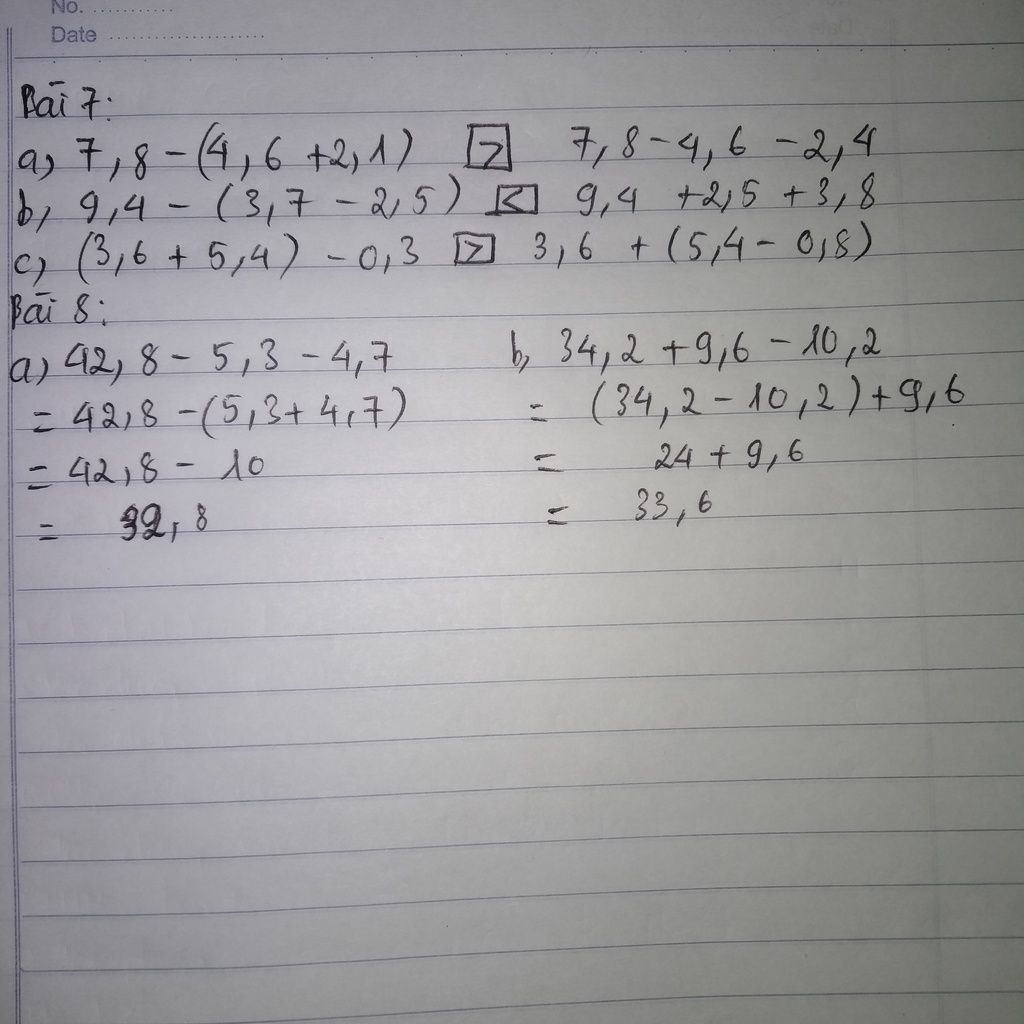 No. ...........
Date .....................
Bài 7:
a) 7,8 - (4,6 + 2,1) > 7,8 - 4,6 - 2,4
b, 9,4 - (3,7 - 2,5) < 9,4 + 2,5 + 3,8
c) (3,6 + 5,4) - 0,3 > 3,6 + (5,4 - 0,8)
Bài 8:
a) 42,8 - 5,3 - 4,7 b, 34,2 + 9,6 - 10,2
= 42,8 - (5,3 + 4,7) = (34,2 - 10,2) + 9,6
= 42,8 - 10 = 24 + 9,6
= 32,8 = 33,6